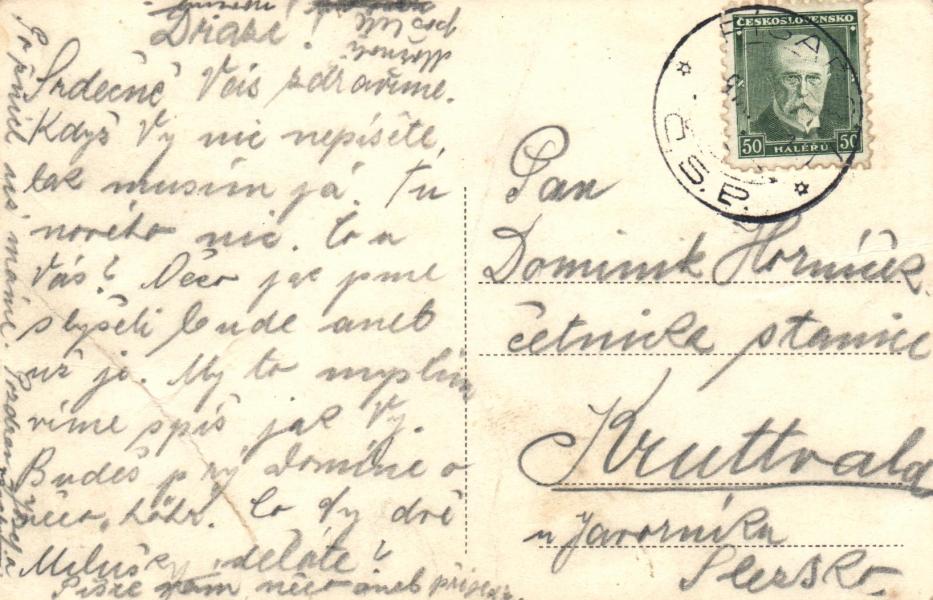 Drazí!
Srdečně Vás zdravíme.
Když Vy nic nepíšete,
tak musím já. Tu
nového nic. Co u
Vás? Něco jak jsme
slyšeli bude aneb
už je. My to myslím
víme spíš jak Vy.
Budeš prý Domine o
něco
Co Ty dvě
Milušky deláte?
Pište nám něco aneb
ČESKOSLOVENSKO
50 HALÉŘŮ 50
Č.S.P.
Pan
Dominik Horníček
četnická stanice
Kruttvald
u Javorníka
Slezsko.